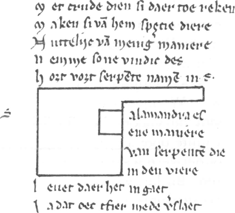 M et crude dien si daer toe reken
M aken si vā hem spetie diere
N uttelijc vā menig̛ maniere
N emme so ne vindic des
h ort vort serpēte namē in s.
s
alamandra es
ene maniere
van serpenten die
in den viere
l evet daer het in gaet
J adat oec tfier mede v̛slaet